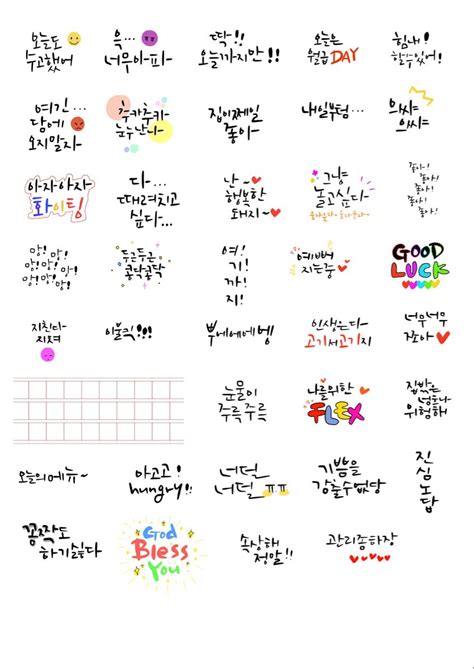 오늘도
수고했어
윽...
너무아-파-
딱!!
오늘까지만!!
오늘은
월급DAY
힘내!
할수있어!
여긴...
담에
오지말자
추카추카-
눈누난나-
집이제일
좋아-
내일부텀...
으쌰-
으쌰-
아자아자
화이팅
다...
때려치고
싶다...
난~
행복한
돼지~
그냥
놀고싶다-
좋아!
좋아!
좋아!
좋아!
좋아!
앙! 앙!
앙! 앙! 앙!
앙! 앙! 앙!
두근두근
콩닥콩닥
여!
기!
까!
지!
예뻐
지는중
GOOD
LUCK
지친다-
지쳐
이불킥!!!
뿌에에에엥
인생은다-
고기서고기지
너무너무
조아-
눈물이
주륵주륵
나를위한
FLEX
집밖는
넘흐나
위험해
오늘의메뉴~
아고고!
hungry!!
너덜
너덜 ㅠㅠ
기쁨을
감출수없당
진
심
노
답
꼼짝도
하기싫다
God
Bless
You
속상해
정말!!
관리좀하장